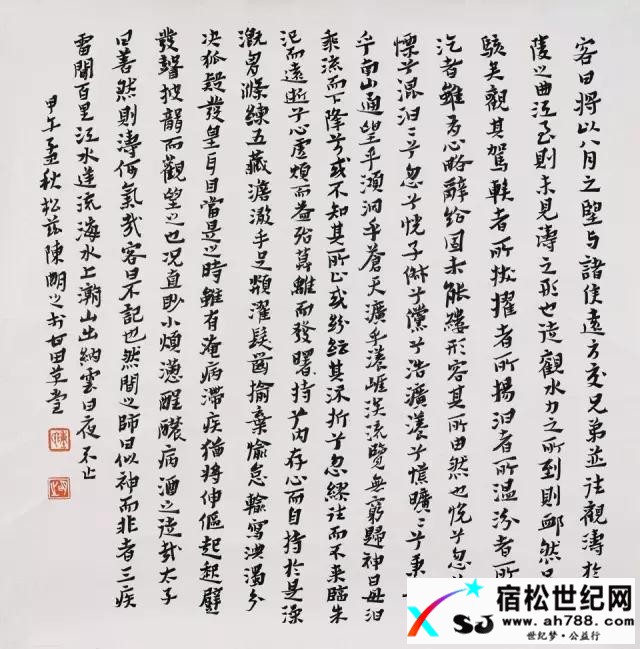 客曰将以八月之望與諸侯遠方交兄弟並往觀濤於
陵之曲江至則未見濤之形也造觀水力之所到則卹然
駭矣觀其駕軼者所擢者所揚汩者所温汾者所
汔者雖有心略辭給固未能縷形容其所由然也怳兮忽
慄兮混汩〻兮忽兮恍兮俶兮儻兮浩瀇瀁兮慌曠〻兮秉
乎南山通望乎澒洞乎蒼天瀇乎瀁崖涘流覽無窮歸神日母汩
乘流而下降兮或不知其所止或紛紜其流折兮忽繆往而不來臨朱
汜而遠逝兮心虛煩而益怠莫離而發曙持兮内存心而自持於是澡
溉匈滌練五藏澹澉手足頮濯髮齒揄棄愉怠輸寫淟濁分
决狐疑發皇耳目當是之時雖有淹病滯疾猶将伸傴起躄
發瞽披聾而觀望之也况直眇小煩懣酲醲病酒之徒哉太子
曰善然則濤何氣哉客曰不記也然聞之師曰似神而非者三疾
雷聞百里江水逆流海水上潮山出納雲日夜不止
甲午孟秋松茲陳湖之於田草堂
宿松世纪网
www.ah788.com
世纪梦·公益行
XSJ